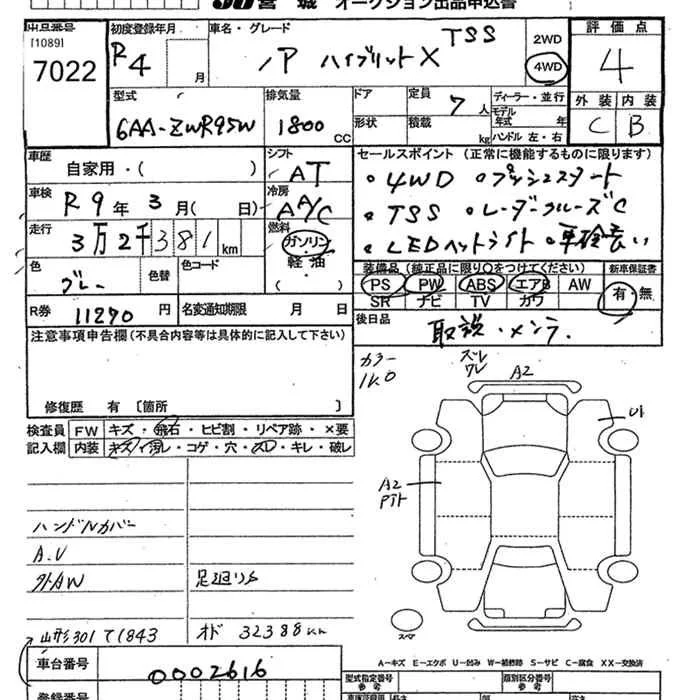 宮城 オークション出品申込書
出品番号
[1089]
7022
初度登録年月
R4 月
車名・グレード
ノア ハイブリットX TSS
2WD
4WD
評価点
4
型式
6AA-ZWR95W
排気量
1800 CC
ドア
形状
定員 7 人
積載 kg
ディーラー・並行
モデル年式 年
ハンドル 左・右
外装 内装
C B
車歴
自家用・( )
シフト
AT
車検
R9年 3月( 日)
冷房
AA/C
走行
3万2千381km
燃料
ガソリン
軽油
( )
色
グレー
色替
色コード
R券 11290 円
名変通知期限 月 日
セールスポイント (正常に機能するものに限ります)
・4WD ・プッシュスタート
・TSS ・レーダークルーズC
・LEDヘットライト ・車検長い
装備品 (純正品に限り○をつけてください)
新車保証書
PS PW ABS エアB AW
SR ナビ TV カワ
有・無
後日品
取説・メンテ.
注意事項申告欄(不具合内容等は具体的に記入して下さい)
修復歴 有 〔箇所 〕
カラー
1K0
ズレ
ワレ
A2
U1
A2
Pイト
スペア
検査員
記入欄
FW キズ・飛石・ヒビ割・リペア跡・×要
内装 キズ・汚れ・コゲ・穴・スレ・キレ・破レ
ハンドルカバー
A.V
外AW
足廻りサ
山形301 て1843
オド 32388km
車台番号
0002616
A-キズ E-エクボ U-凹み W-補修跡 S-サビ C-腐食 XX-交換済
登録番号
型式指定番号
参考
類別区分番号
参考